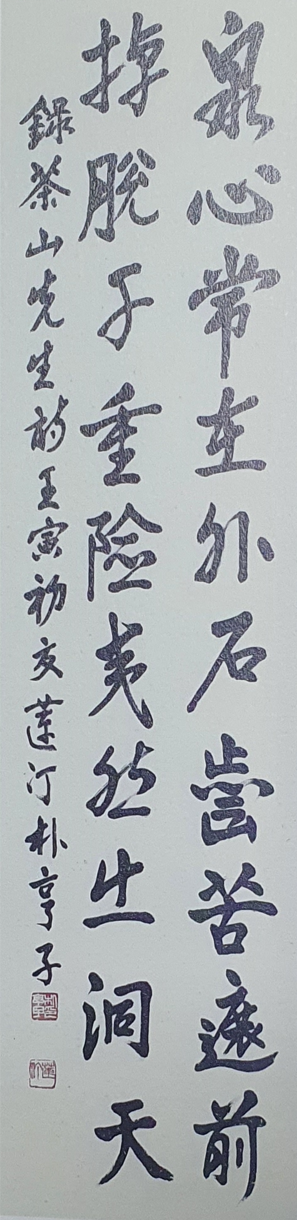 泉心常在外石齒苦遮前
掉脫千重險夷然出洞天
錄茶山先生詩 壬寅初夏 蓮汀 朴亨子